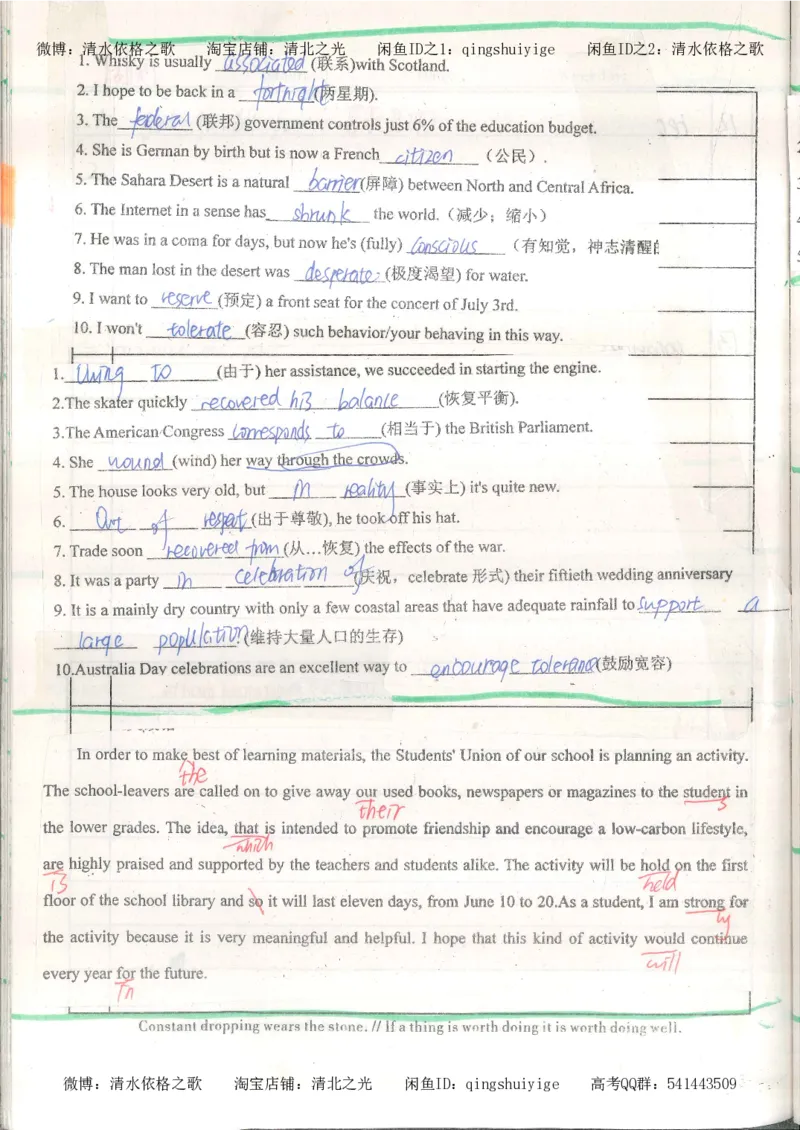 微博：清水依格之歌 淘宝店铺：清北之光 闲鱼ID之1：qingshuiyige 闲鱼ID之2：清水依格之歌
1. Whisky is usually associated (联系)with Scotland.
2. I hope to be back in a fortnight(两星期).
3. The federal (联邦) government controls just 6% of the education budget.
4. She is German by birth but is now a French citizen （公民）.
5. The Sahara Desert is a natural barrier(屏障) between North and Central Africa.
6. The Internet in a sense has shrunk the world.（减少；缩小）
7. He was in a coma for days, but now he's (fully) conscious （有知觉，神志清醒的
8. The man lost in the desert was desperate (极度渴望) for water.
9. I want to reserve (预定) a front seat for the concert of July 3rd.
10. I won't tolerate (容忍) such behavior/your behaving in this way.
1. to (由于) her assistance, we succeeded in starting the engine.
2.The skater quickly recovered his balance (恢复平衡).
3.The American Congress corresponds to (相当于) the British Parliament.
4. She wound (wind) her way through the crowds.
5. The house looks very old, but in reality (事实上) it's quite new.
6. Out of respect (出于尊敬), he took off his hat.
7. Trade soon recovered from (从…恢复) the effects of the war.
8. It was a party in celebration of (庆祝，celebrate 形式) their fiftieth wedding anniversary
9. It is a mainly dry country with only a few coastal areas that have adequate rainfall to support a
large population (维持大量人口的生存)
10.Australia Day celebrations are an excellent way to encourage tolerance(鼓励宽容)
In order to make best of learning materials, the Students' Union of our school is planning an activity.
the
The school-leavers are called on to give away our used books, newspapers or magazines to the student in
their s
the lower grades. The idea, that is intended to promote friendship and encourage a low-carbon lifestyle,
which
are highly praised and supported by the teachers and students alike. The activity will be hold on the first
is held
floor of the school library and so it will last eleven days, from June 10 to 20.As a student, I am strong for
ly
the activity because it is very meaningful and helpful. I hope that this kind of activity would continue
will
every year for the future.
in
Constant dropping wears the stone. // If a thing is worth doing it is worth doing well.
微博：清水依格之歌 淘宝店铺：清北之光 闲鱼ID：qingshuiyige 高考QQ群：541443509